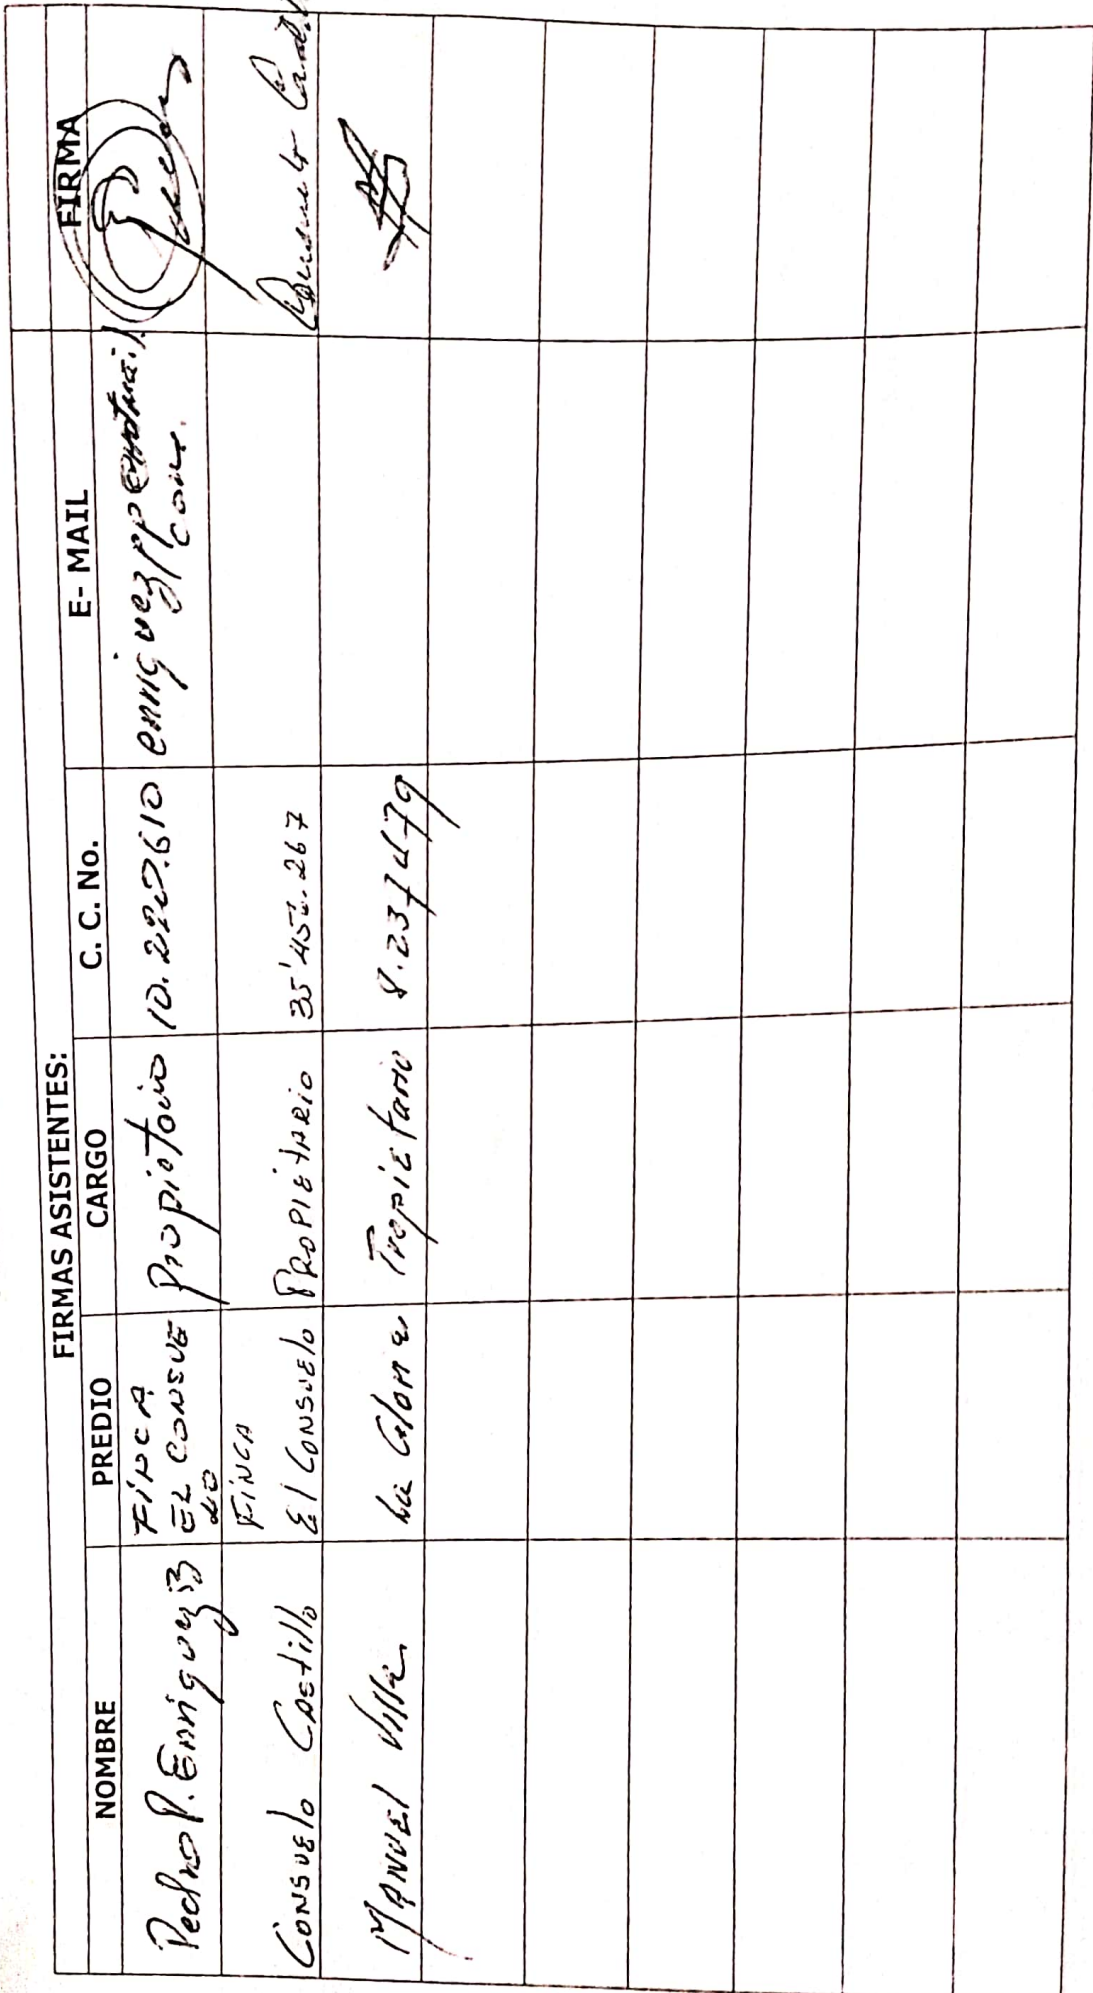 FIRMAS ASISTENTES:
NOMBRE PREDIO CARGO C. C. No. E- MAIL FIRMA
Pedro P. Enriquez B FINCA EL CONSUE LO Propietario 10.220.610 enriquezpp@hotmail. com.
Consuelo Castillo FINCA El Consuelo PROPIETARIO Consuelo
MANUEL Villa La Gloria Propietario